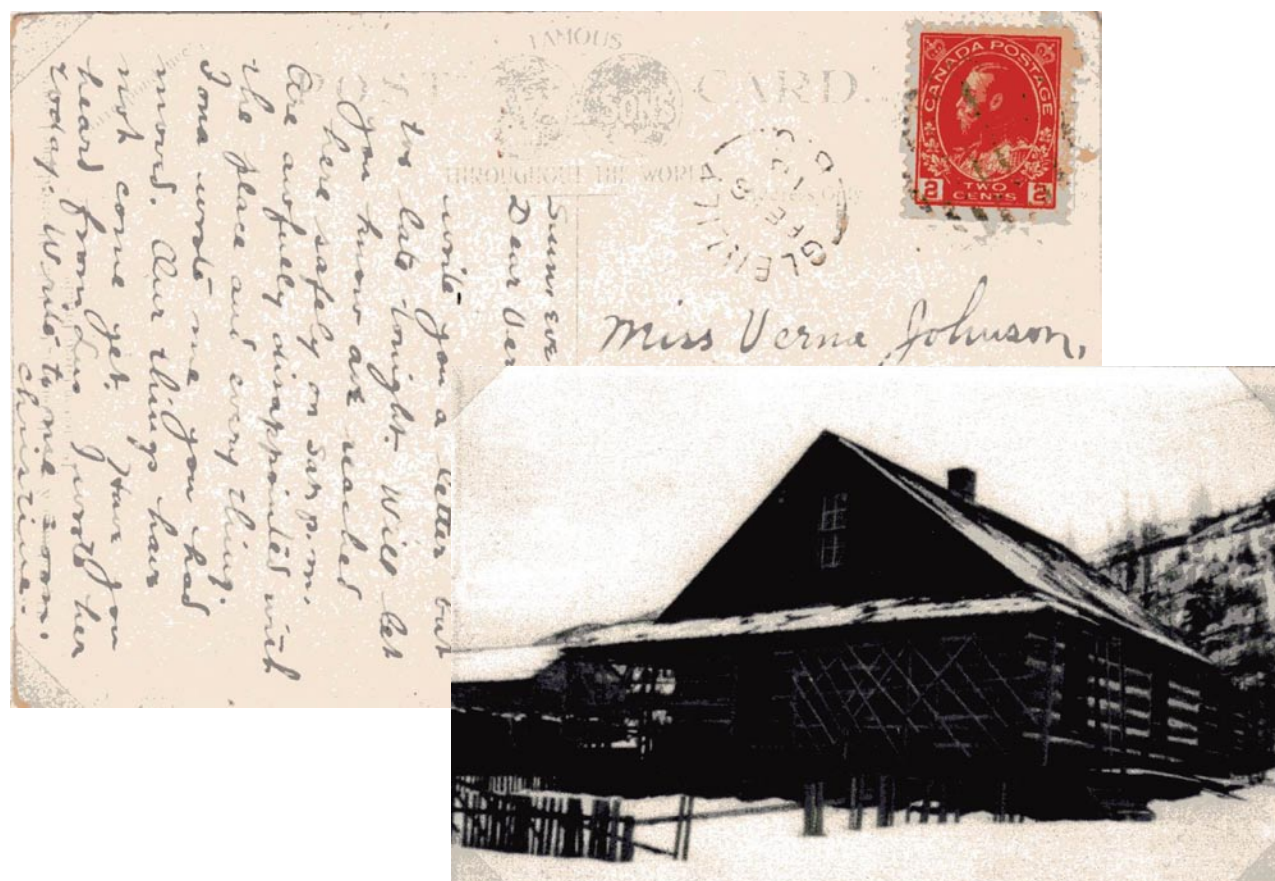 FAMOUS
CARD.
THROUGHOUT THE WORLD
CANADA POSTAGE
2 TWO CENTS 2
Miss Verna Johnson,
Eve
Dear Ver
write you a letter but
too late tonight. Will let
you know we reached
here safely on Sat p.m.
Are awfully disappointed with
the place and every thing.
Iona wrote me you had
moved. Our things have
not come yet. Have you
heard from I wrote her
today. Write to me soon.
Christine.